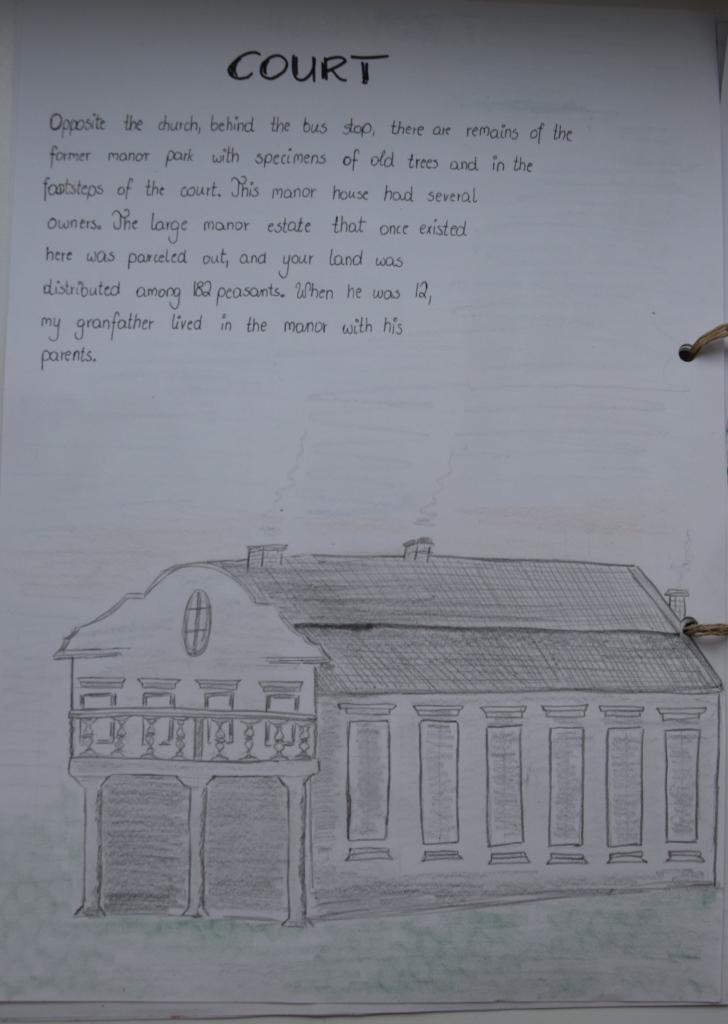 COURT
Opposite the church, behind the bus stop, there are remains of the
former manor park with specimens of old trees and in the
footsteps of the court. This manor house had several
owners. The large manor estate that once existed
here was parceled out, and your land was
distributed among 182 peasants. When he was 12,
my granfather lived in the manor with his
parents.